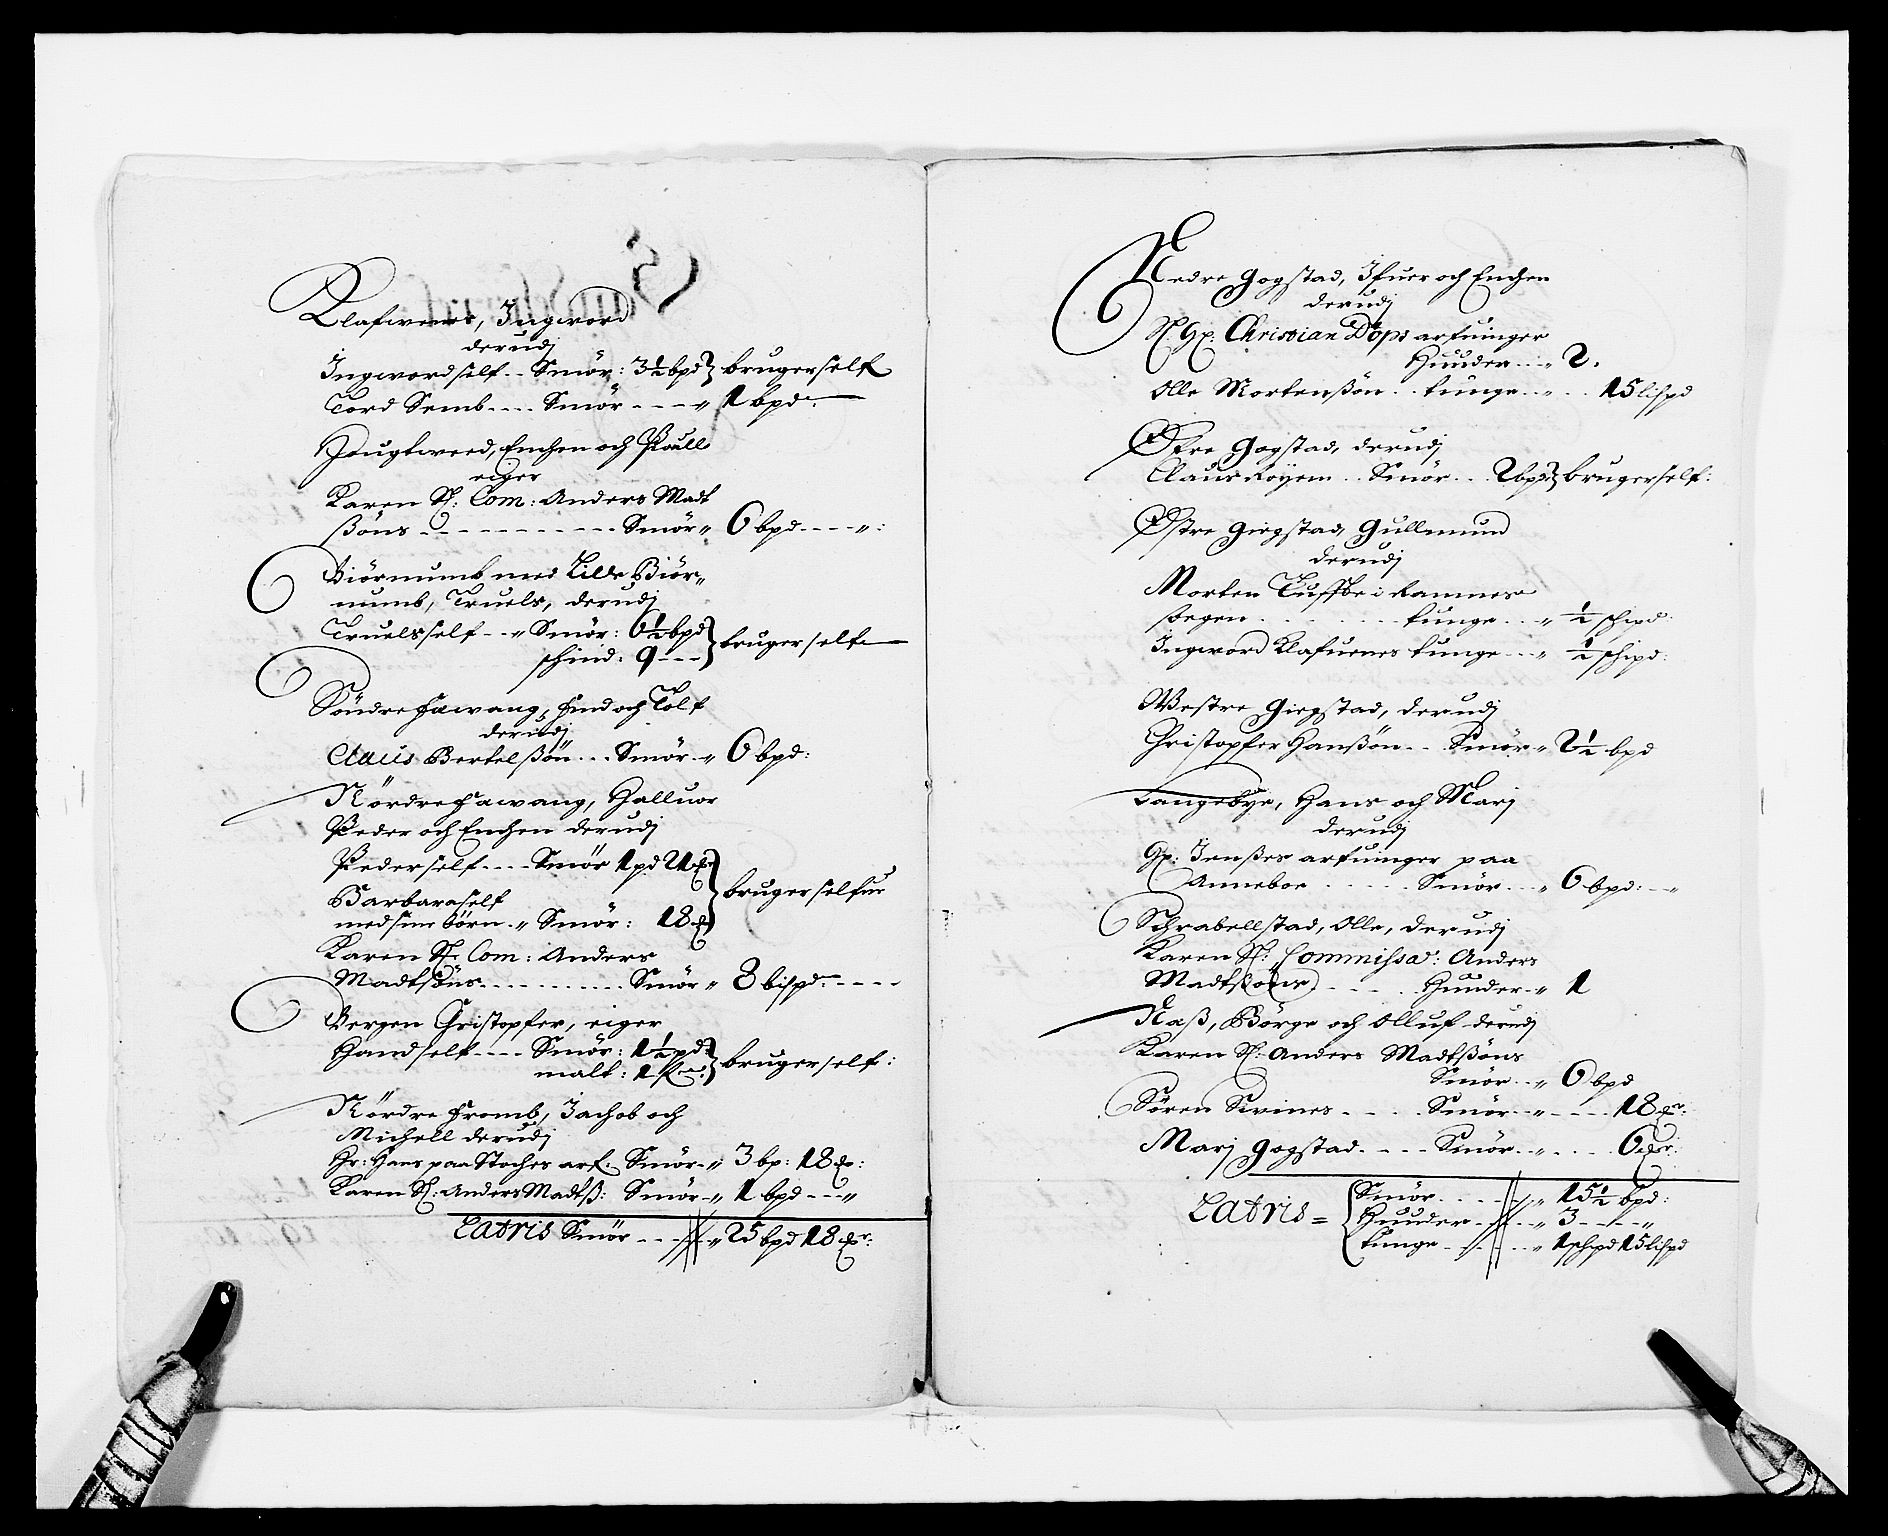 Klafwenes, Ingword
derudj
Ingword self .. Smör: 3½ bpd } bruger self
Tord Semb .... Smör .... „ 1 bpd:
Haugtweed, Enchen och Poull
eiger
Karen Sl: Com: Anders Madt
ßöns - - - - - - Smör „ 6 bpd - - - - „:
Biörnumb med Lille Biör„
numb, Truels, derudj
Truels self - - „ Smör: 6½ bpd } bruger self
schind: 9 - - -
Söndre Fawang, Find och Tolf
derudj
Claus Bertelßön ... Smör - „ 6 bpd:
Nördre Fawang, Halluor
Peder och Enchen derudj
Peder self .... Smör 1 pd 21 }
Barbara self
med sine börn „ Smör: 18 } bruger selfue
Karen Sl: Com: Anders
Madtßöns .......... Smör „ 8 bispd: - - - -
Bergen Christopfer, eiger
Hand self .... Smör: 1½ pd: } bruger self:
malt: 1
Nördre Fromb, Jachob och
Michell derudj
Hr: Hans paa Stoches arf. Smör - „ 3 bp: 18
Karen Sl: Anders Madtß: Smör - „ 1 bpd - - „
Latris Smör - - - „ 25 bpd 18
Nedre Gogstad, Ifuer och Enchen
derudj
Sl: Hr: Christian Döps arfuinger
Huuder ... „ 2.
Olle Mortenßön .. tunge .. „ .. 15 lispd
Øfre Gogstad, derudj
Claus Röyem .. Smör ... 2 bpd } bruger self:
Østre Giegstad, Gullemund
derudj
Morten Tuffte i Ramnes
soegen ........ tunge ... „ ½ schpd:
Ingword Klafuenes tunge ... „ ½ schpd:
Westre Giegstad, derudj
Christopfer Hanßön .. Smör - „ 2½ bpd
Langebye, Hans och Marj
derudj
Hr: Jenßes arfuinger paa
Anneboe ..... Smör ... „ 6 bpd: - „
Schrabellstad, Olle, derudj
Karen Sl: Commissa: Anders
Madtßöns) - - - Huuder - „ 1
Naß, Börge och Olluf derudj
Karen Sl: Anders Madtßöns
Smör .. „ 6 bpd
Sören Svines .... Smör .. „ .... 18
Marj Gogstad .... Smör .. „ .... 6
Latris = { Smör .... „ 15½ bpd:
Huuder - - - „ 3 - - - „
tunge - - - „ 1 schpd 15 lispd